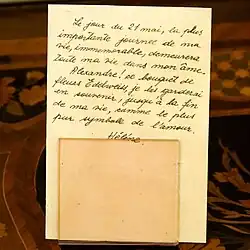 Le jour du 21 mai, la plus
importante journée de ma
vie, immémorable, demeurera
toute ma vie dans mon âme.
Alexandre! ce bouquet de
fleurs Edelweiss, je les garderai
en souvenir, jusqu'à la fin
de ma vie, comme le plus
pur symbole de l'amour.
Hélène